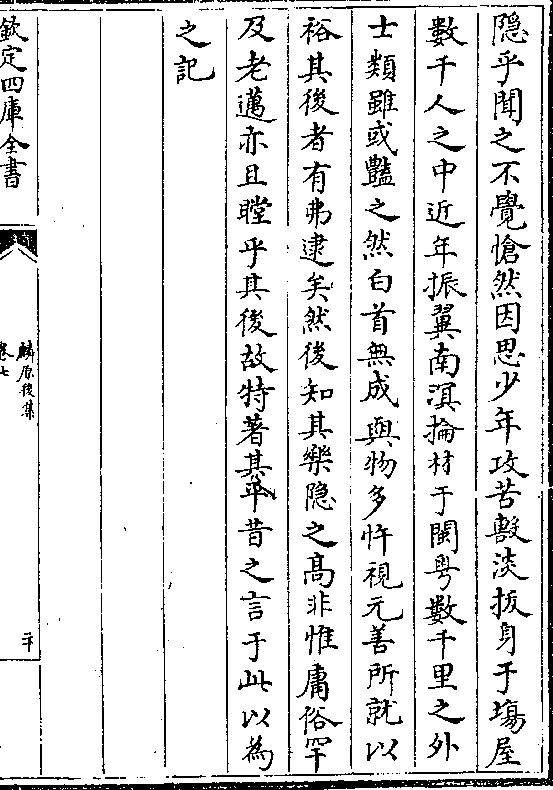 隠乎聞之不覺愴然因思少年攻苦㪚淡抜身于塲屋
數千人之中近年振翼南溟掄材于閩粤數千里之外
士類雖或豔之然白首無成與物多忤視元善所就以
裕其後者有弗逮矣然後知其樂隠之髙非惟庸俗罕
及老邁亦且瞠乎其後故特著其平昔之言于此以為
之記
欽定四庫全書
麟原後集
卷七
二十